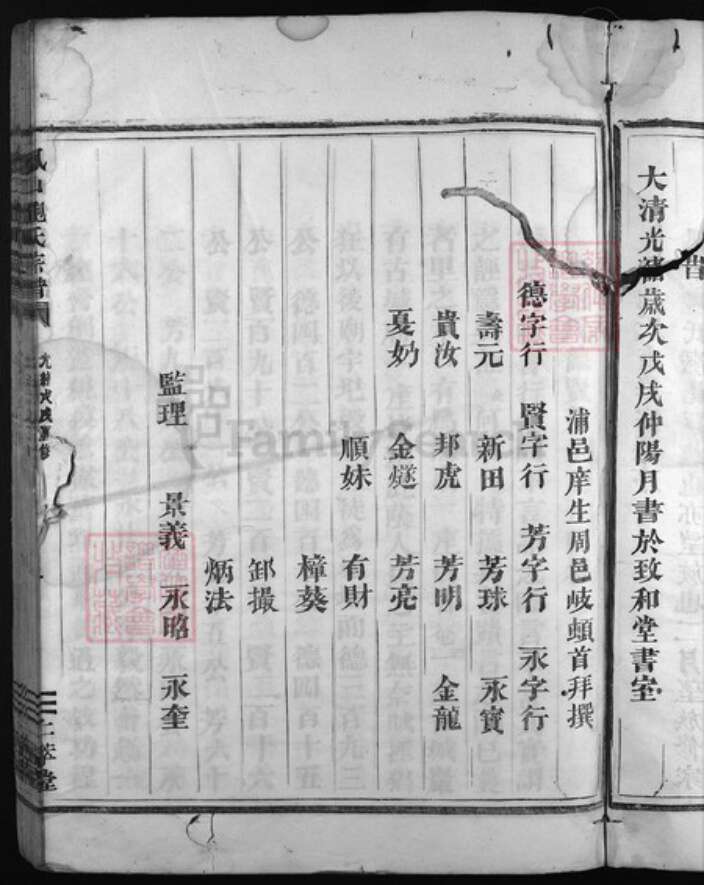 大清光緒歲次戊戌仲陽月書於致和堂書室
浦邑庠生周邑岐頓首拜撰
德字行 賢字行 芳字行 永字行
壽元 新田 芳球 永寶
貴汝 邦虎 芳明 金龍
夏奶 金燧 芳亮
順妹 有財
樟葵
卸撮
炳法
監理 景義 永昭 永奎
鳳山鮑氏宗譜
光緒戊戌重修
FamilySearch